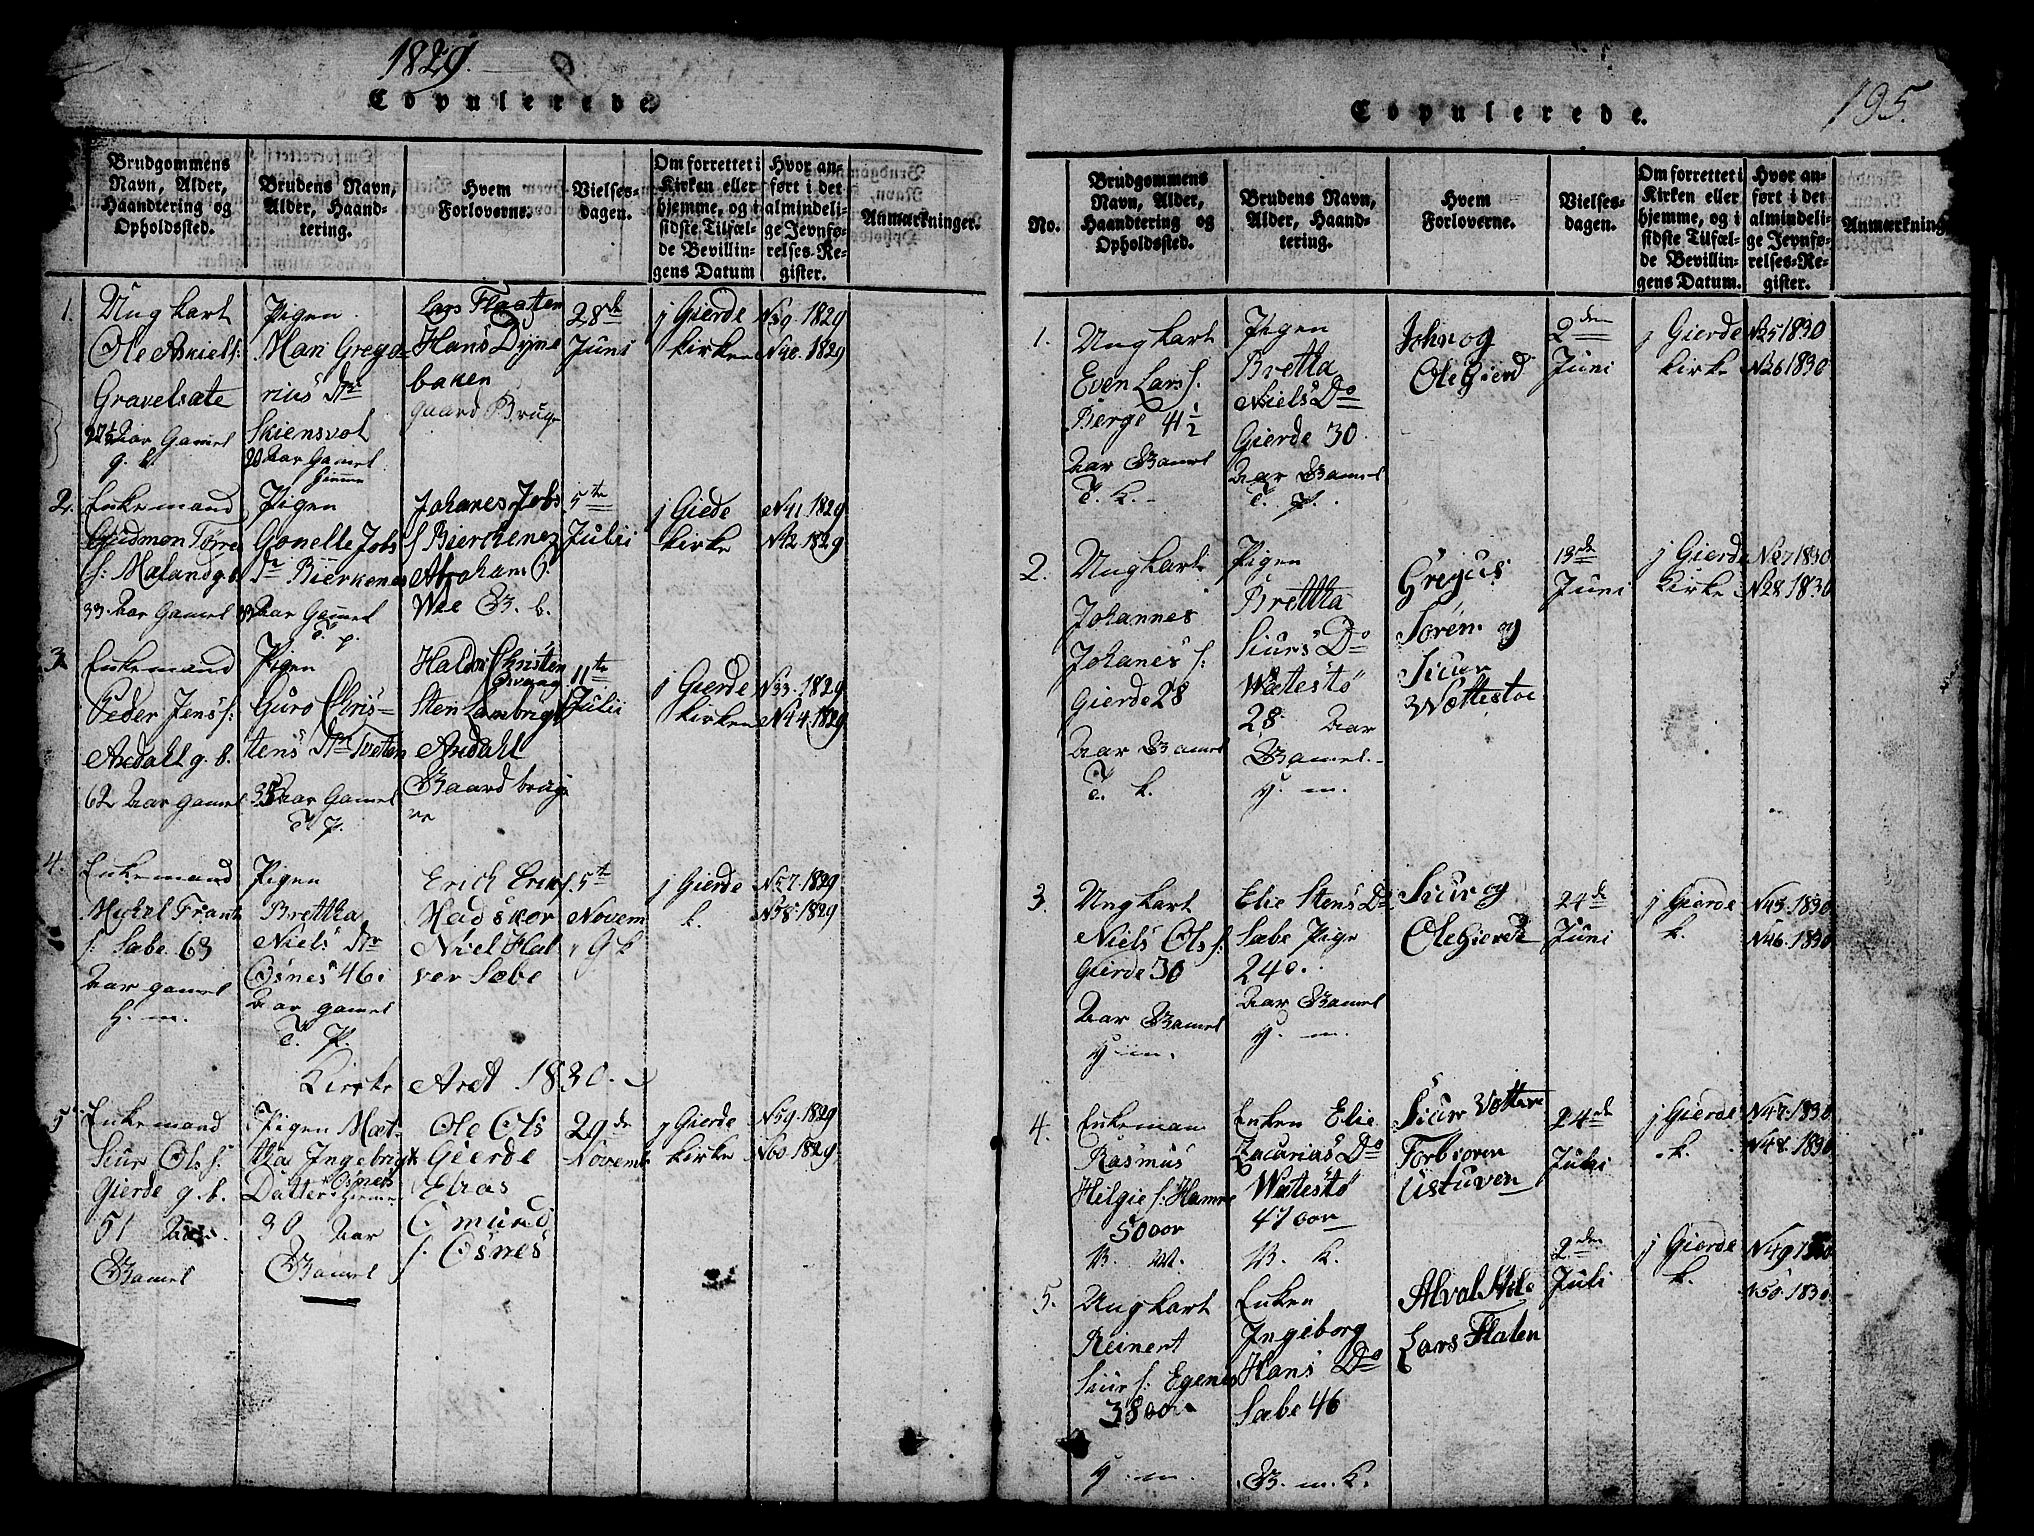 1829.
Copulerede.
Brudgommens Navn, Alder, Haandtering og Opholdssted.
Brudens Navn, Alder, Haandtering.
Hvem Forloverne.
Vielsesdagen.
Om forrettet i Kirken eller hjemme, og i sidste Tilfælde Bevillingens Datum
Hvor anført i det almindelige Jevnførelses-Register.
Anmærkninger.
1.
Ung kart
Ole Asniels:
Gravelsæte
Aar Gamel
Pigen
Mari Grega
rius Dtr
Skiensvol
20 Aar Gamel
Lars Flaatten
Hans Dyne
baken
gaard Bruge
28de
Juni
j Gierde
kirken
N39. 1829
N40. 1829
2.
Enkemand
Gudmon Tørres
s: Mæland g. b.
33 Aar Gamel
Pigen
Gonelle Jobs
Dr Bierkenes
Aar Gamel
t p.
Johanes Jobs
s Bierckenez
Abraham
Wee G. b.
5te
Julii
j Giede
kirke
N41. 1829
N42. 1829
3
Enkemand
Peder Jens s:
Aredalt g. b.
62 Aar gamel
Pigen
Guro Chris-
tens Dr Tveten
35 Aar Gamel
T. p.
Haldor Christen
Sten Lambrigt
Aredahl
Gaard brug
re
11te
Julii
j Gierde
kirken
N33. 1829
N44. 1829
4.
Enkemand
Mickel Frantz
s. Sæbe 63
Aar gamel
h. m.
Pigen
Brettha
Niels Dr
Osnes 46.
Aar gamel
T. P.
Erich Eriks.
Madskor
Niel Hal
ver Sæbe
5te
Novem
j Gierde
k.
N57. 1829
N58. 1829
Kirste Aret 1830.
5
Enkemand
Siur Ols s:
Gierde g. b.
51 Aar.
Gamel
Pigen Mæt-
tha Ingebrigt
Datter Osnes
30 Aar
Gamel
Ole Ols
Gierde
Elias
Omund
s. Osnes
29de
Novemb
j Gierde
kirke
N59. 1829
N60. 1829
195.
Copulerede.
No.
Brudgommens Navn, Alder, Haandtering og Opholdssted.
Brudens Navn, Alder, Haandtering.
Hvem Forloverne.
Vielsesdagen.
Om forrettet i Kirken eller hjemme, og i sidste Tilfælde Bevillingens Datum.
Hvor anført i det almindelige Jevnførelses-Register.
Anmærkning
1.
Ungkart
Even Lars s.
Berge 41 1/2
Aar Gamel
T. K.
Pigen
Bretta
Niels Do
Gierde 30
Aar Gamel
T. p.
John og
Ole Gierd
2den
Juni
j Gierde
kirke
N25 1830
N26 1830
2.
Ungkart
Johannes
Johanes s:
Gierde 28
Aar Gamel
T. k.
Pigen
Brettha
Siurs Do
Wætestø
28 Aar
Gamel
y. m.
Gregus
Søren og
Siur
Wættestøe
13de
Juni
j Gierde
Kirke
N27 1830
N28. 1830
3.
Ungkart
Niels Ols s:
Gierde 30
Aar Gamel
y m.
Elie Stens Do
Sæbe Pige
24
Aar Gamel
y. m.
Siur og
Ole Gierde
24de
Juni
j Gierde
k.
N45. 1830
N46. 1830
4.
Enkeman
Rasmus
Helgie s: Hamre
50 oor
B. M.
Enken Elie
Zacarias Do
Wætestø
47 oor
B. K.
Siur
Torbioren
Ustuven
24de
j Gierde
k.
N47. 1830
N48. 1830
5.
Ungkart
Reinert
Siur s: Egenes
38 oor
y. m.
Enken
Ingeborg
Hans Do
Sæbe 46
G. m. K.
Alval
Lars Flaten
2den
Juli
j Gierde
k.
N49. 1830
N50. 1830